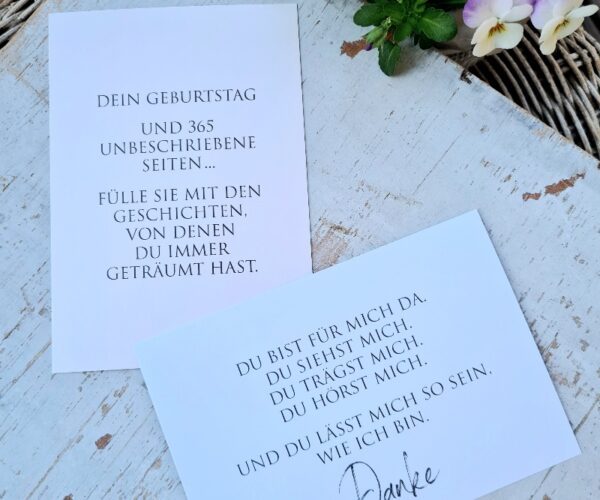 DEIN GEBURTSTAG
UND 365
UNBESCHRIEBENE
SEITEN...
FÜLLE SIE MIT DEN
GESCHICHTEN,
VON DENEN
DU IMMER
GETRÄUMT HAST.
DU BIST FÜR MICH DA.
DU SIEHST MICH.
DU TRÄGST MICH.
DU HÖRST MICH.
UND DU LÄSST MICH SO SEIN,
WIE ICH BIN.
Danke